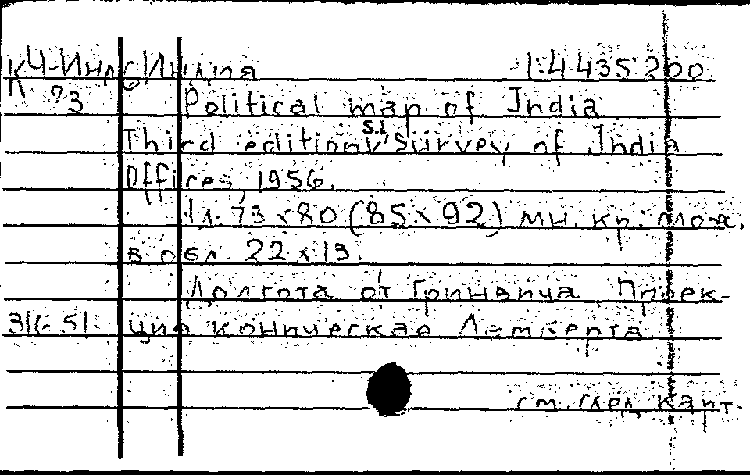 К4-Инд Индия 1:4 435 200
К 73 Political map of India
Third edition. S.l., Survey of India
Offices, 1956.
1 л. 73 x 80 (85 x 92) мн. кр. слож.
в обл. 22 x 13.
Долгота от Гринвича. Проек-
316-51 ция коническая Ламберта
см. след. карт.